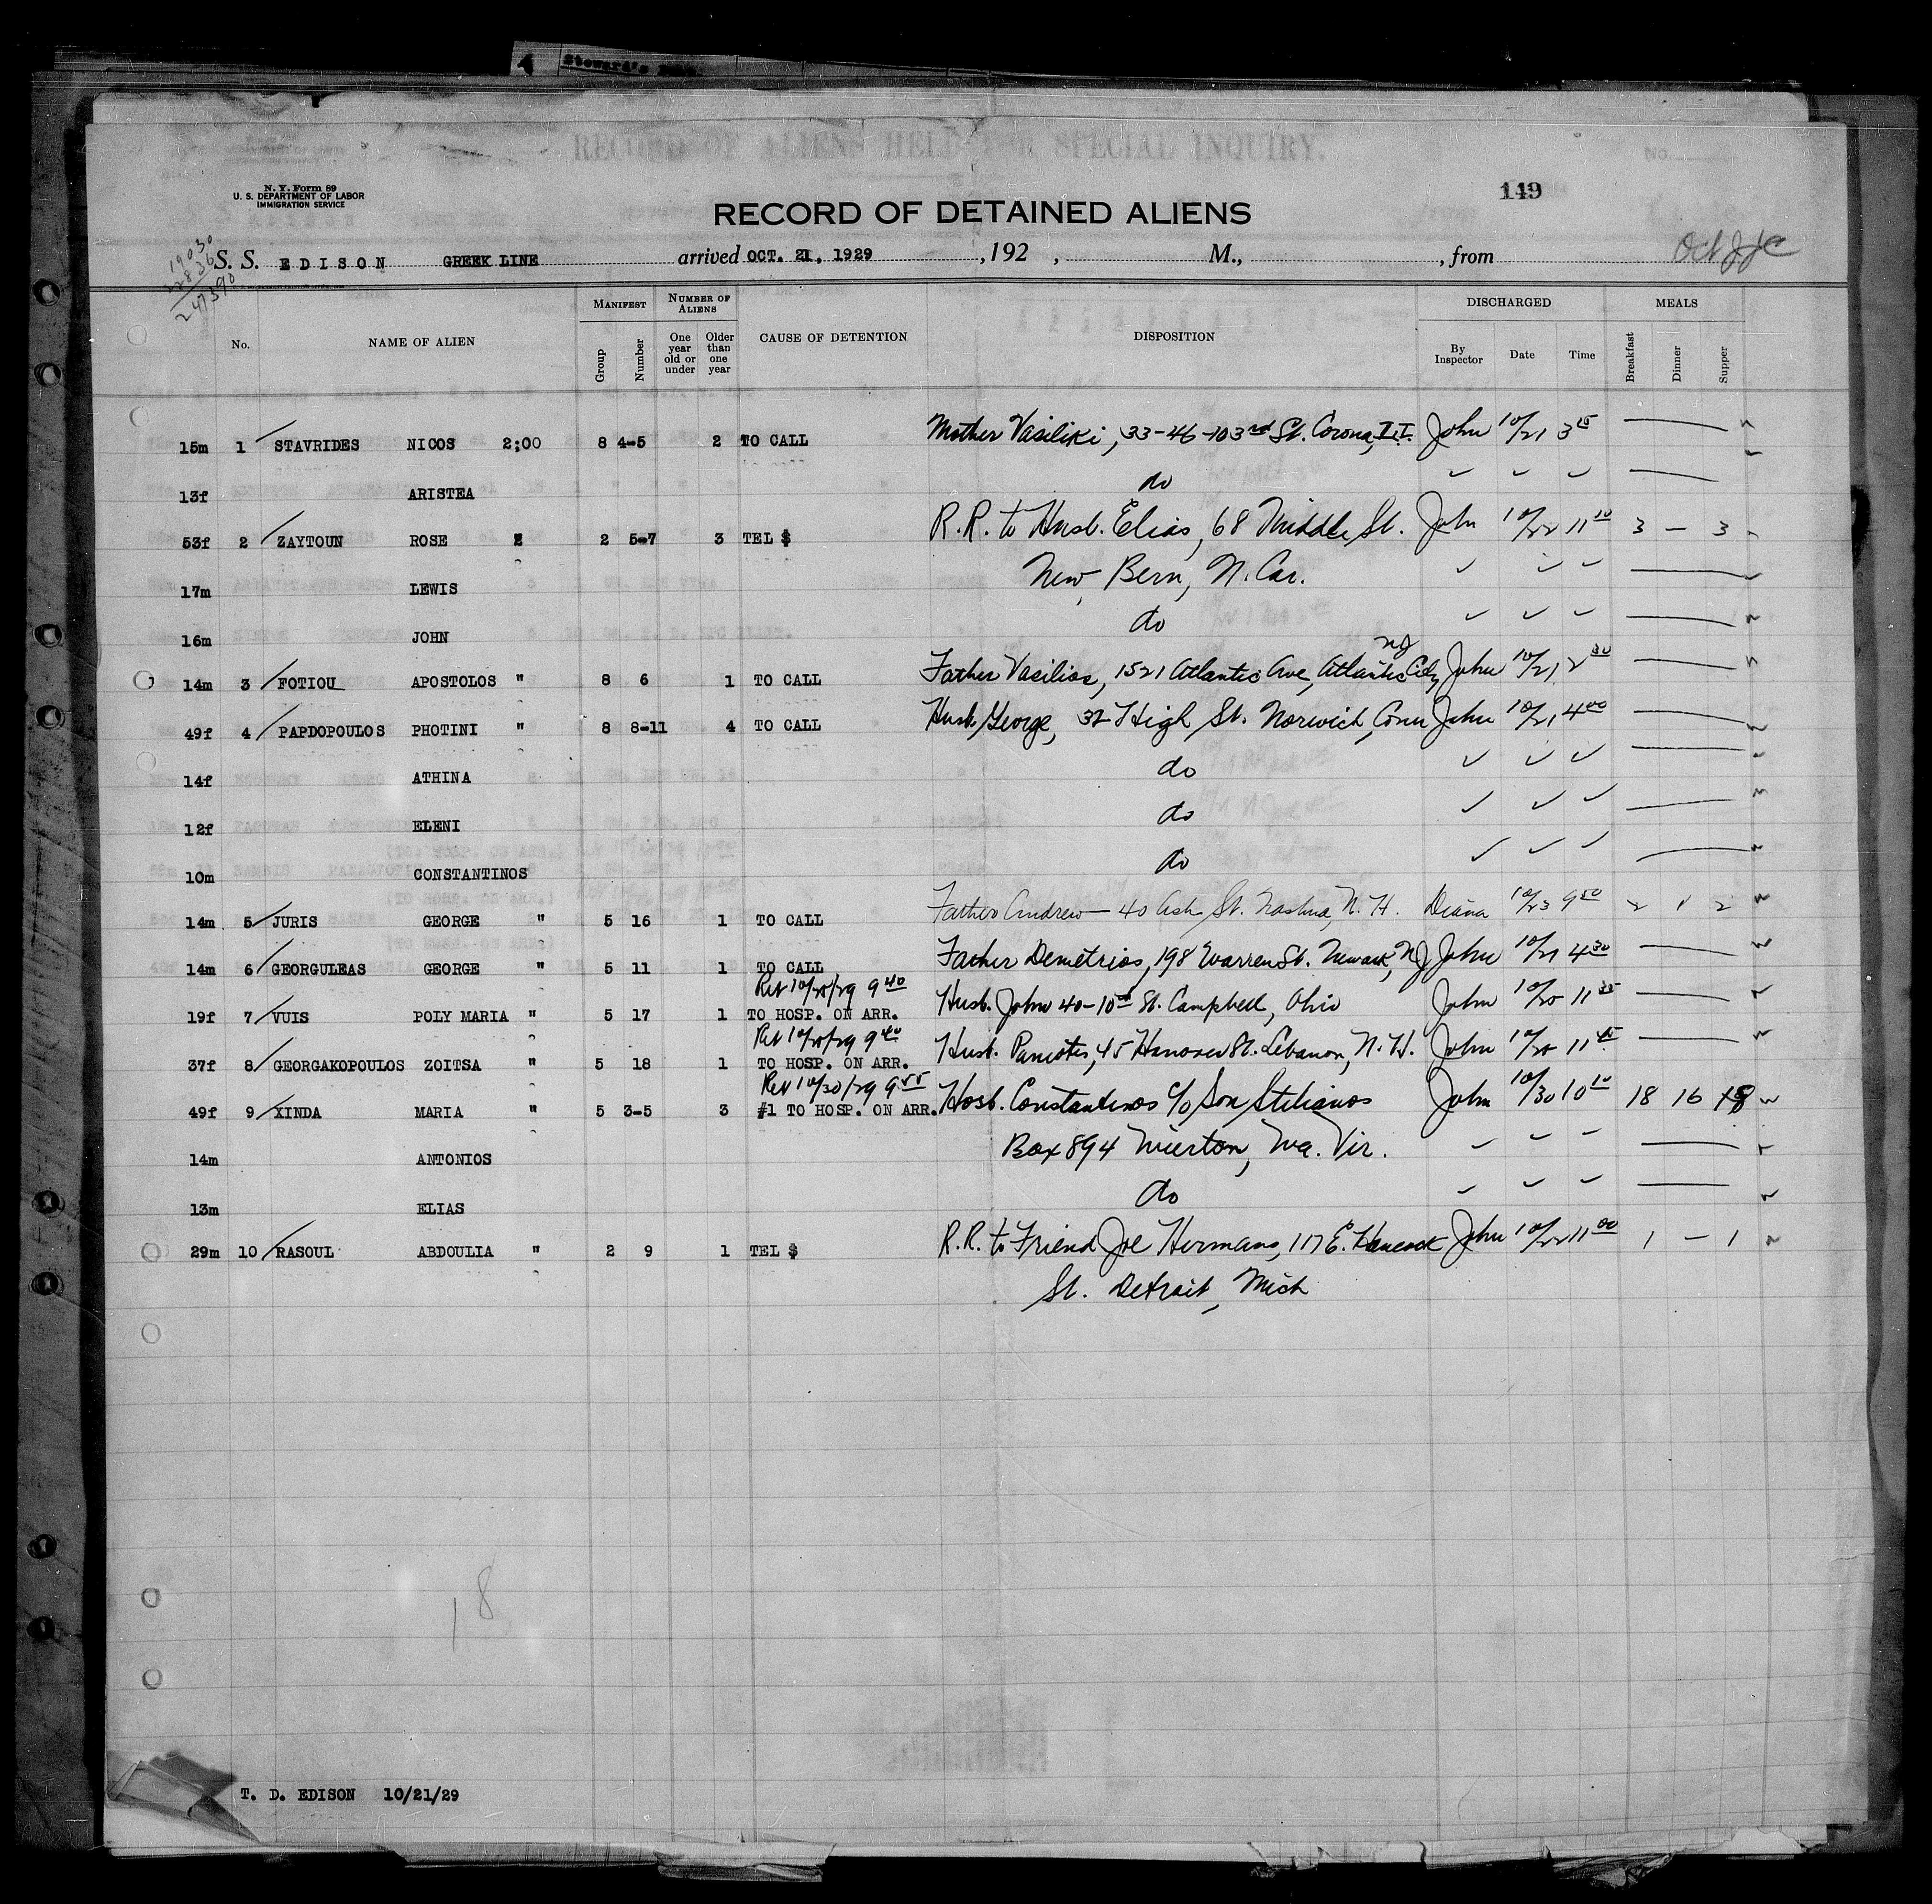 Steward's
149
N. Y. Form 89
U. S. DEPARTMENT OF LABOR
IMMIGRATION SERVICE
RECORD OF DETAINED ALIENS
S. S. EDISON GREEK LINE arrived OCT. 21, 1929 , 192 , M., , from
No. NAME OF ALIEN MANIFEST Group Number NUMBER OF ALIENS One year old or under Older than one year CAUSE OF DETENTION DISPOSITION DISCHARGED By Inspector Date Time MEALS Breakfast Dinner Supper
15m 1 STAVRIDES NICOS 2:00 8 4-5 2 TO CALL Mother Vasiliki, 33-46-103rd St. Corona, L.I. John 10/21 3 15
13f ARISTEA do ✓ ✓ ✓
53f 2 ZAYTOUN ROSE 2 5-7 3 TEL $ R.R. to Husb. Elias, 68 Middle St. John 10/22 11 10 3 — 3
17m LEWIS New Bern, N. Car. ✓ ✓ ✓
16m JOHN do ✓ ✓ ✓
14m 3 FOTIOU APOSTOLOS " 8 6 1 TO CALL Father Vasilios, 1521 Atlantic Ave, Atlantic City, NJ John 10/21 2 30
49f 4 PAPDOPOULOS PHOTINI " 8 8-11 4 TO CALL Husb. George, 32 High St. Norwich, Conn John 10/21 4 00
14f ATHINA do ✓ ✓ ✓
12f ELENI do ✓ ✓ ✓
10m CONSTANTINOS do ✓ ✓ ✓
14m 5 JURIS GEORGE " 5 16 1 TO CALL Father Andrew — 40 Ash St. Nashua, N. H. Diana 10/23 9 50 2 1 2
14m 6 GEORGULEAS GEORGE " 5 11 1 TO CALL Father Demetrios, 198 Warren St. Newark, NJ John 10/21 4 30
Ret 10/25/29 9 40
19f 7 VUIS POLY MARIA " 5 17 1 TO HOSP. ON ARR. Husb. John 40-10th St. Campbell, Ohio John 10/25 11 35
Ret 10/25/29 9 40
37f 8 GEORGAKOPOULOS ZOITSA " 5 18 1 TO HOSP. ON ARR. Husb. Paniotis, 45 Hanover St. Lebanon, N. H. John 10/25 11 45
Ret 10/30/29 9 55
49f 9 XINDA MARIA " 5 3-5 3 #1 TO HOSP. ON ARR. Hosb. Constantinos c/o Son Stilianos John 10/30 10 10 18 16 18
14m ANTONIOS Box 894 Wierton, Wa. Vir. ✓ ✓ ✓
13m ELIAS do ✓ ✓ ✓
29m 10 RASOUL ABDOULIA " 2 9 1 TEL $ R.R. to Friend Joe Hermans, 117 E. Hancock John 10/22 11 00 1 — 1
St. Detroit, Mich
18
T. D. EDISON 10/21/29